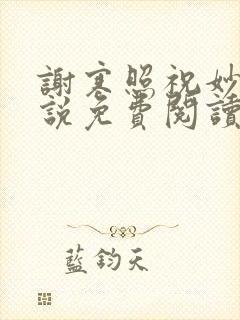 謝寒照祝妙
說免費閱讀
藍鈞天